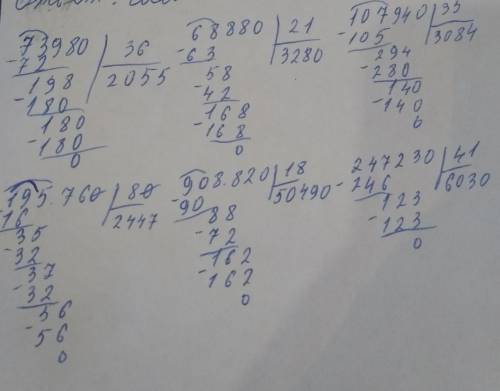 73980 | 36
-72 | 2055
198
-180
180
-180
0
68880 | 21
-63 | 3280
58
-42
168
-168
0
107940 | 35
-105 | 3084
294
-280
140
-140
0
195.760 | 80
16 | 2447
35
-32
37
-32
56
-56
0
908.820 | 18
-90 | 50490
88
-72
162
-162
0
247230 | 41
-246 | 6030
123
-123
0